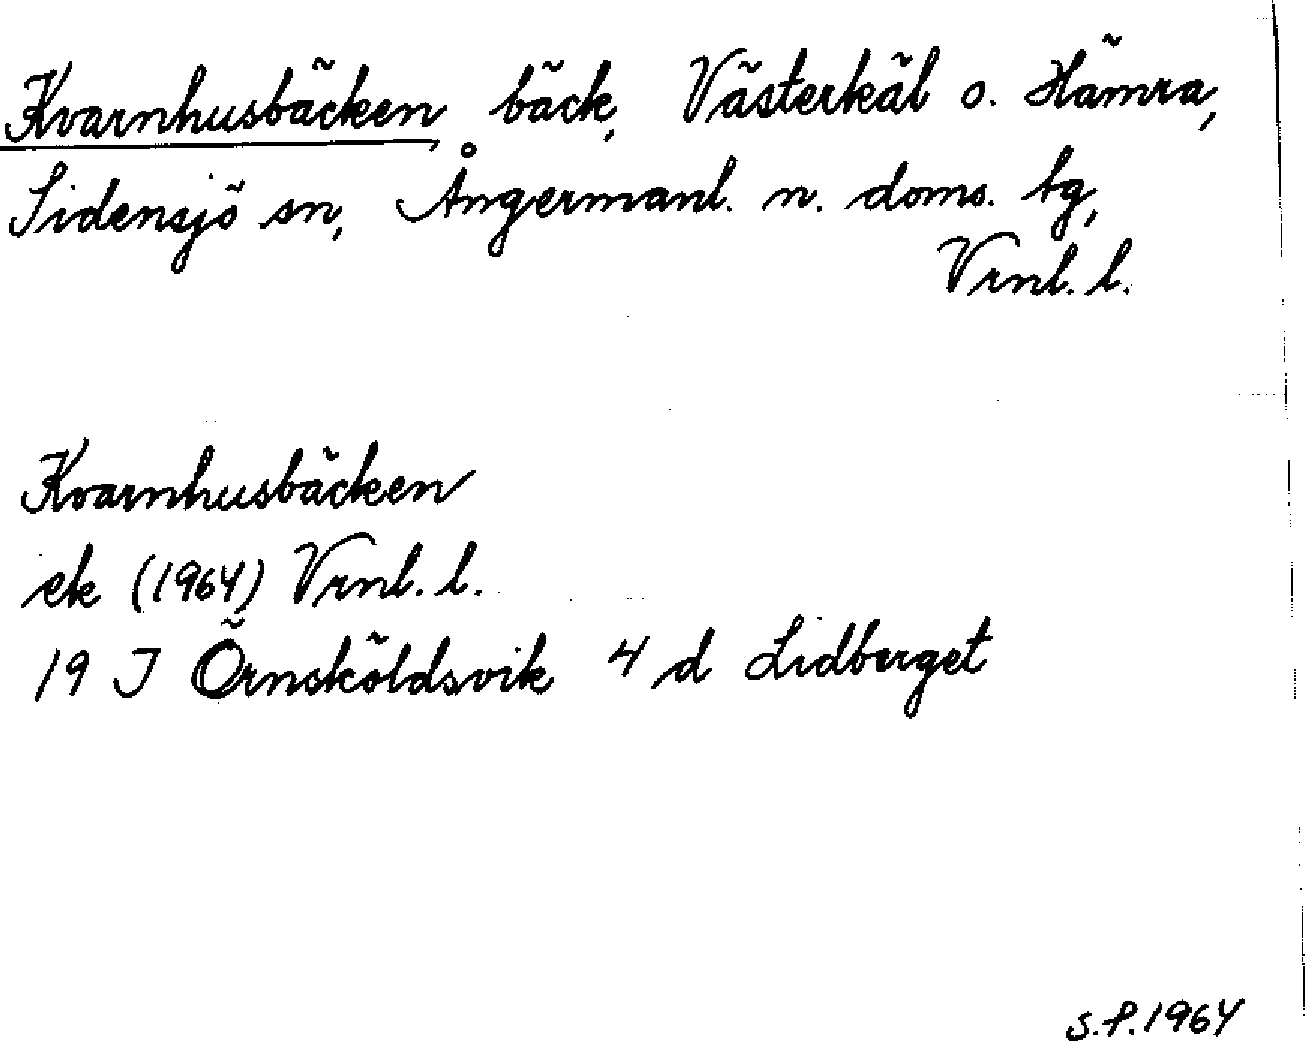 Kvarnhusbäcken, bäck, Västerkäl o. Hämra,
Sidensjö sn, Ångermanl. n. doms. tg,
Vrnl. l.
Kvarnhusbäcken
ek (1964) Vrnl. l.
19 J Örnsköldsvik 4 d Lidberget
S.P. 1964